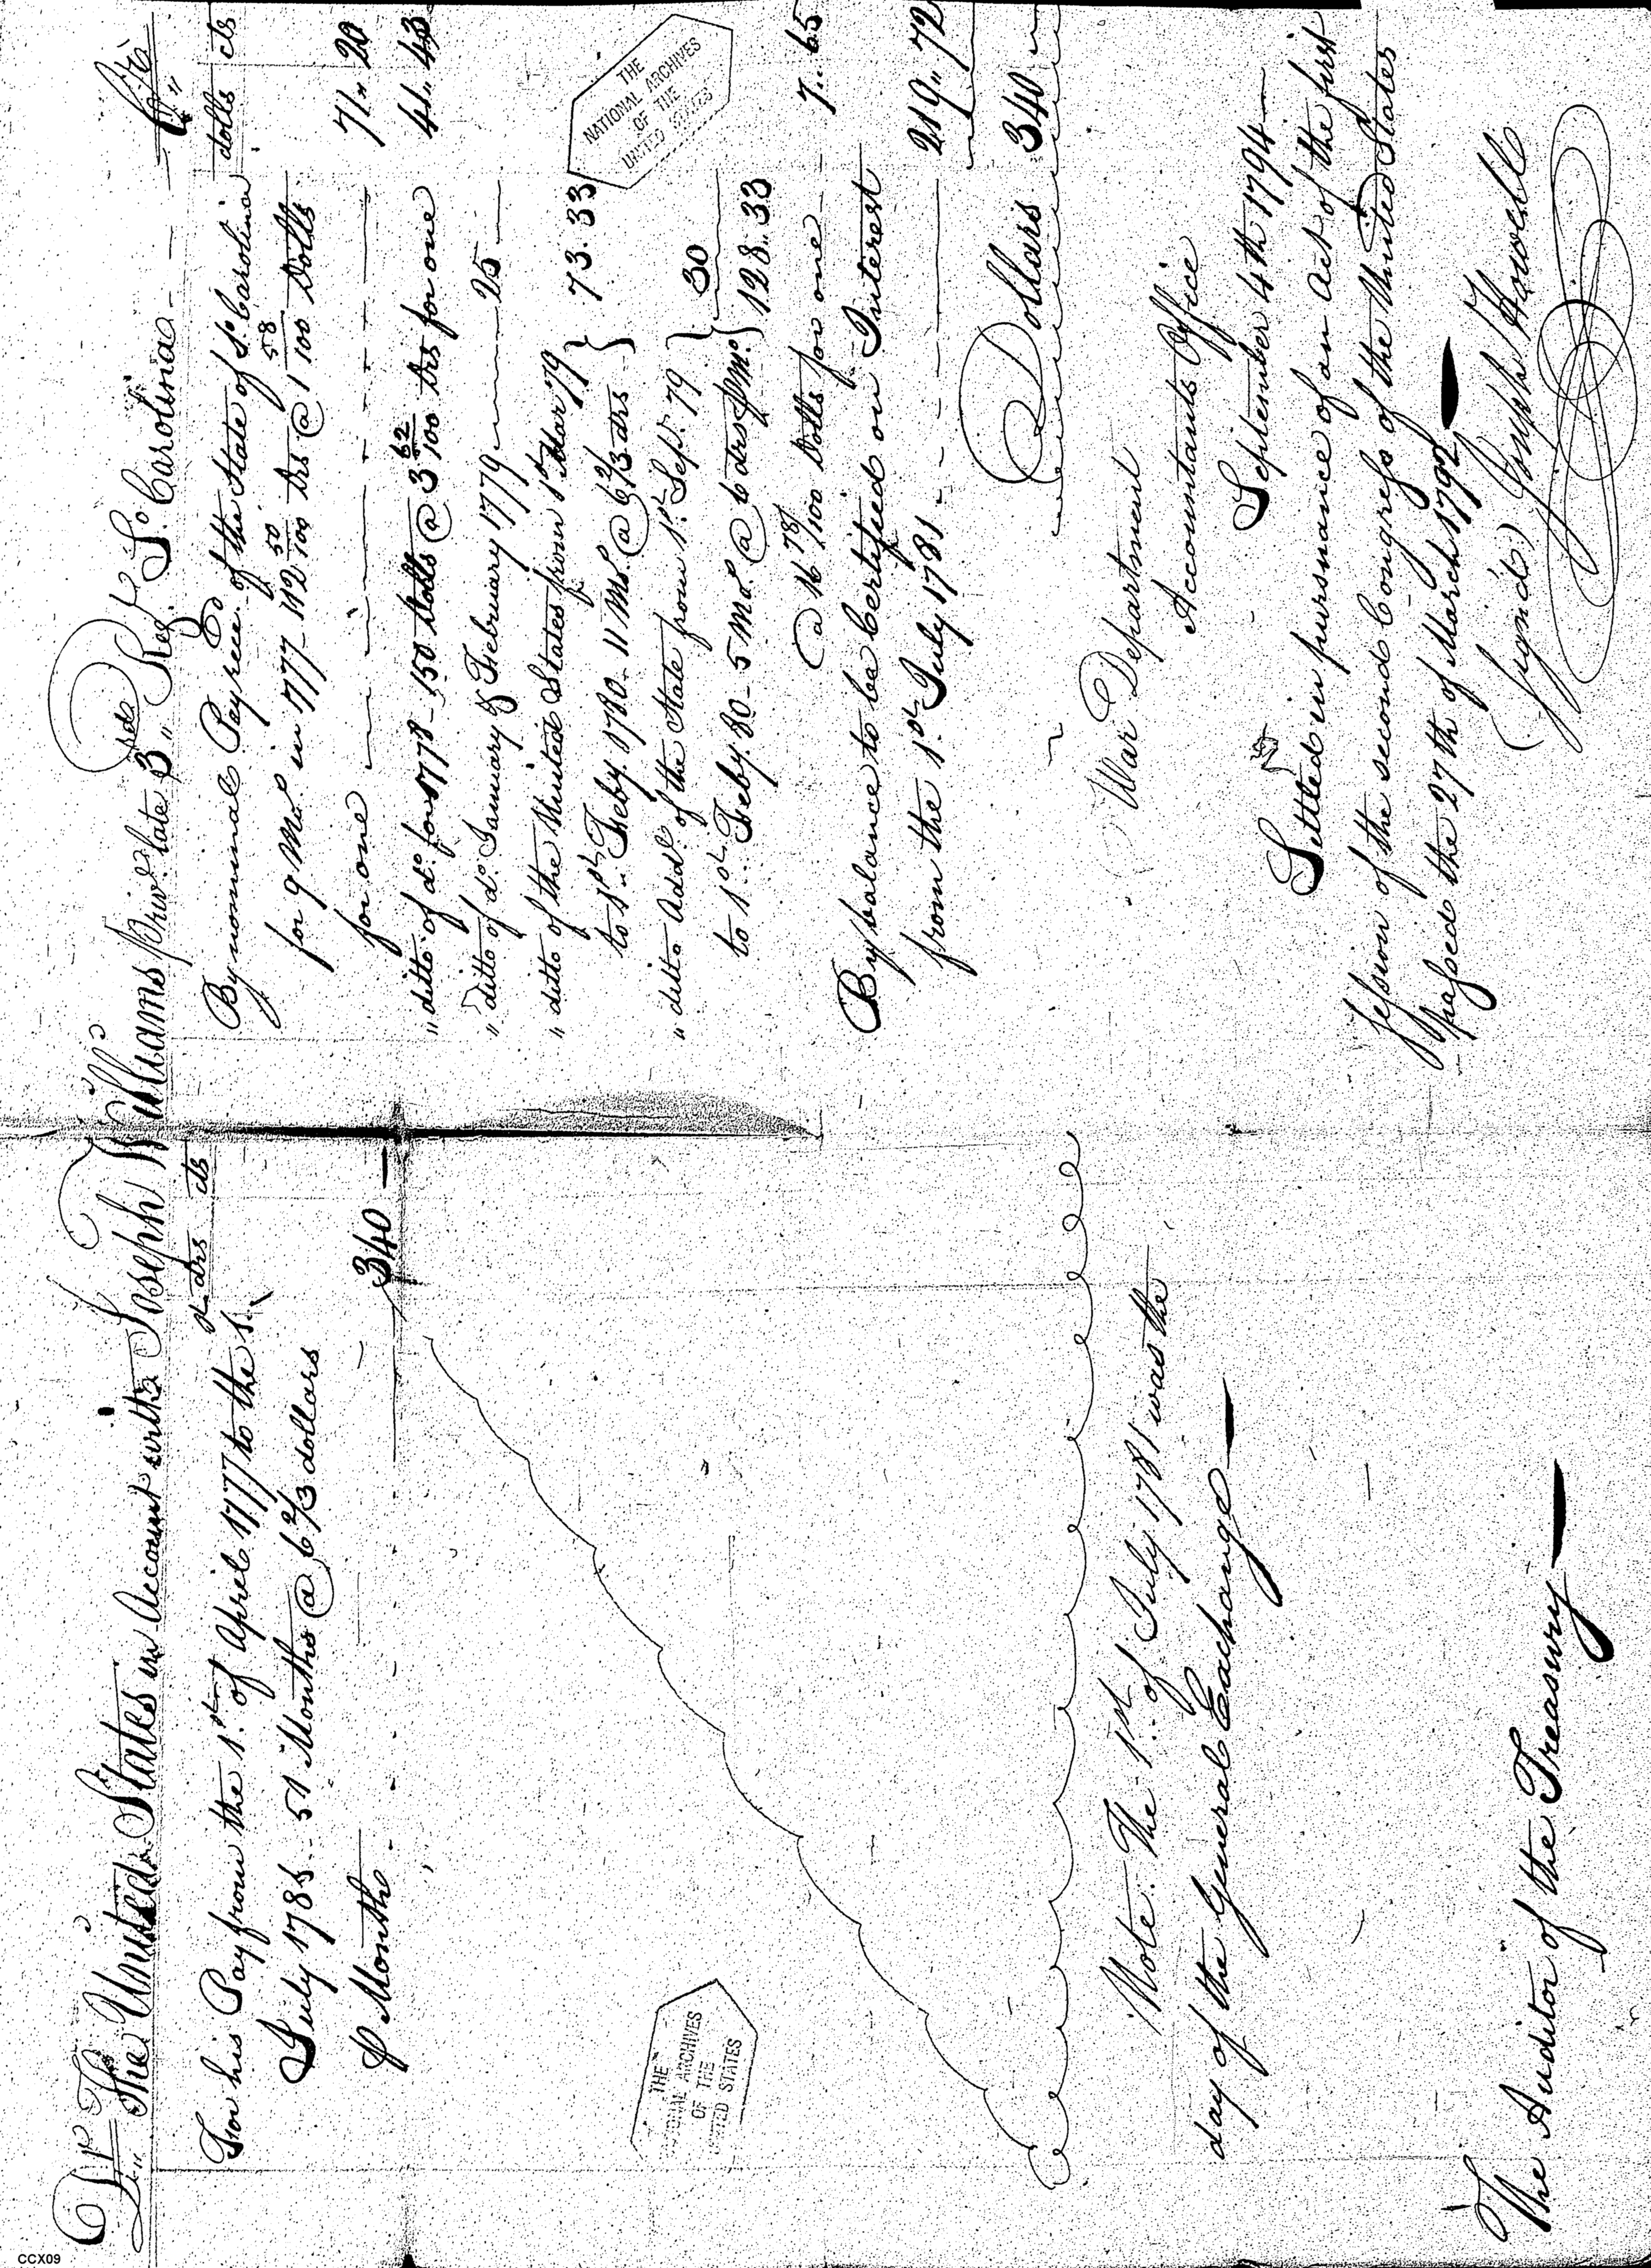 Dr. The United States in Account with Joseph Williams Priv.e late 3rd Reg.t So. Carolina Cr.
drs cts
For his Pay from the 1st. of April 1777 to the 1.
July 1781 - 51 Months @ 6 2/3 dollars
P Month - - - 340 —
Note. The 1st. of July 1781 was the
day of the General Exchange
The Auditor of the Treasury
dolls cts
By nominal Pay rece.d of the State of So. Carolina
for 9 Mos in 1777 - 112 50/100 Drs @ 1 58/100 Dolls
for one 71 " 20
" ditto of do. for 1778 - 150 Dolls @ 3 62/100 drs for one 41 " 43
" ditto of do. January & February 1779 25
" ditto of the United States from 1st Mar 79 }
to 1st. Feby. 1780 - 11 Ms. @ 6 2/3 drs } 73.33
" ditto Addl. of the State from 1st. Sept. 79 }
to 1st. Feby. 80 - 5 Mos. @ 6 drs P Mo. } 30
128 " 33
@ 16 78/100 Dolls for one 7 " 65
By balance to be Certified on Interest
from the 1st. July 1781 - - - 219 " 72
Dollars 340
War Department
Accountants Office
September 4th 1794
Settled in pursuance of an Act of the first
session of the second Congress of the United States
passed the 27th of March 1792
(signed) Joseph Howell
THE
NATIONAL ARCHIVES
OF THE
UNITED STATES
THE
NATIONAL ARCHIVES
OF THE
UNITED STATES
CCX09